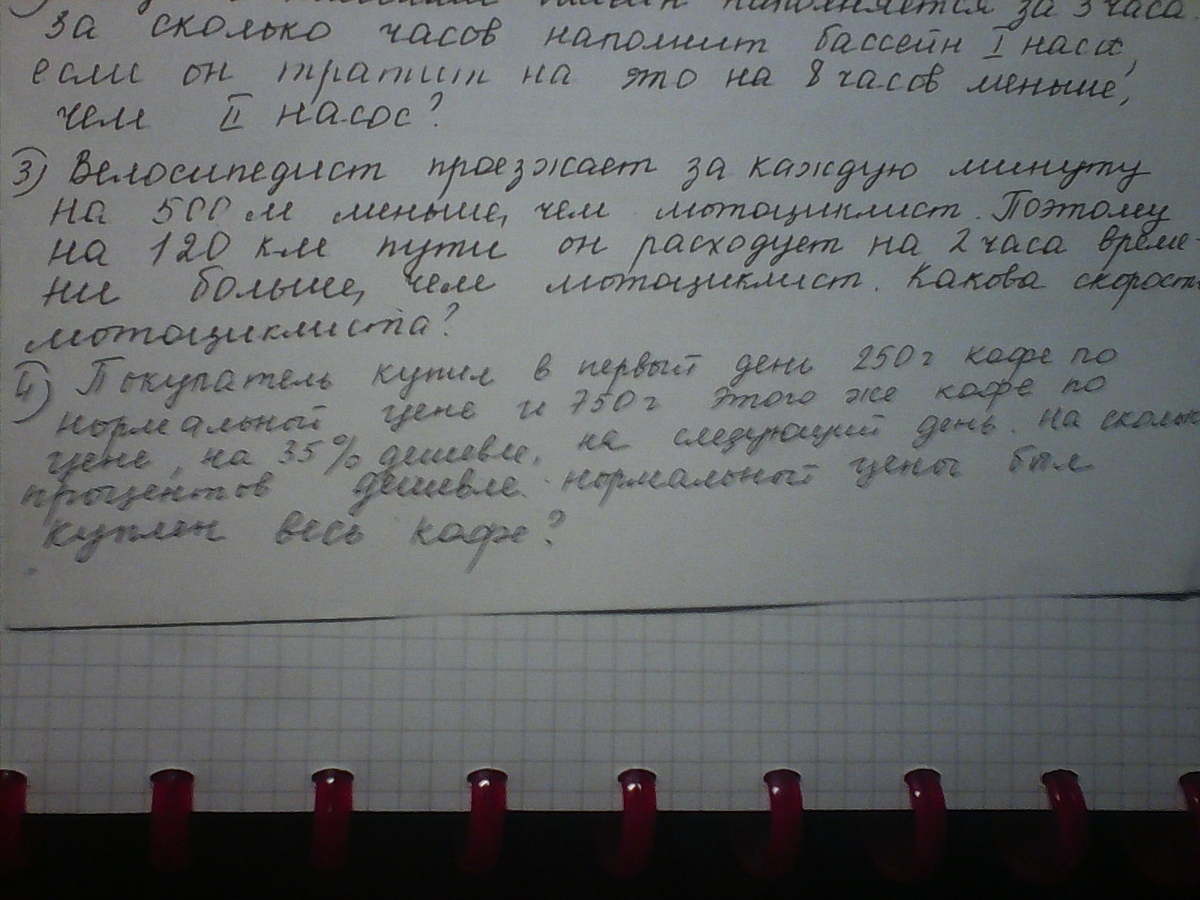 наполняется за 3 часа.
За сколько часов наполнит бассейн I насос,
если он тратит на это на 8 часов меньше,
чем II насос?
3) Велосипедист проезжает за каждую минуту
на 500 м меньше, чем мотоциклист. Поэтому
на 120 км пути он расходует на 2 часа време-
ни больше, чем мотоциклист. Какова скорость
мотоциклиста?
4) Покупатель купил в первый день 250 г кофе по
нормальной цене и 750 г этого же кофе по
цене, на 35% дешевле, на следующий день. На сколько
процентов дешевле нормальной цены был
куплен весь кофе?